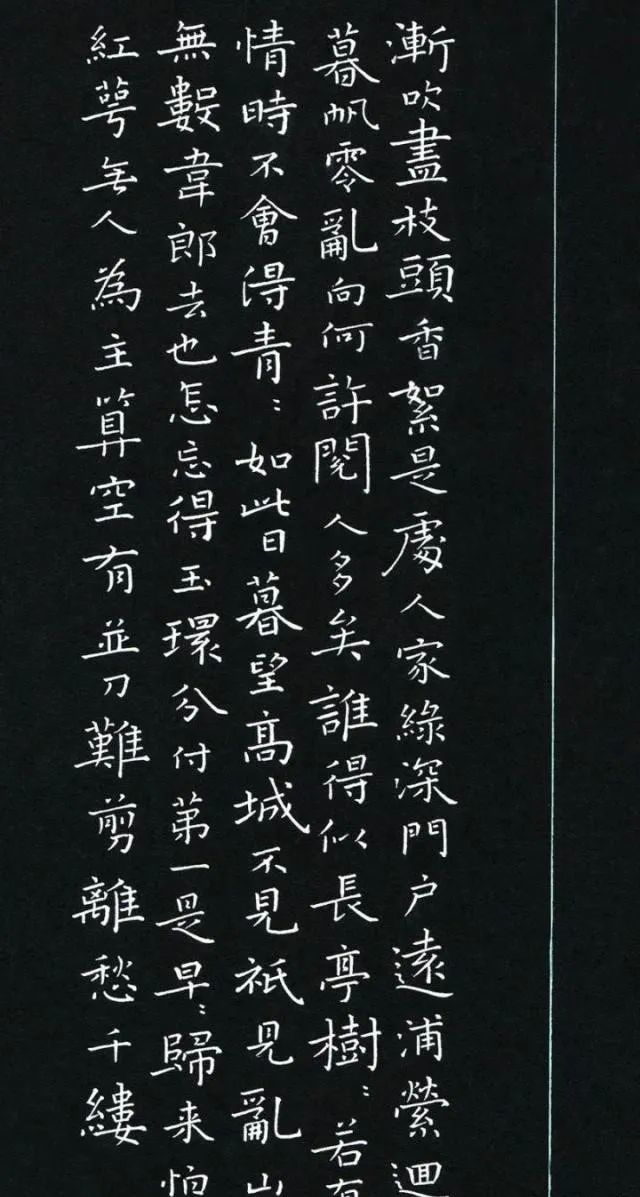 漸吹盡枝頭香絮是處人家綠深門户遠浦縈迴
暮帆零亂向何許閱人多矣誰得似長亭樹〻若有
情時不會得青〻如此日暮望高城不見祇見亂山
無數韋郎去也怎忘得玉環分付第一是早〻歸来怕
紅萼無人為主算空有並刀難剪離愁千縷